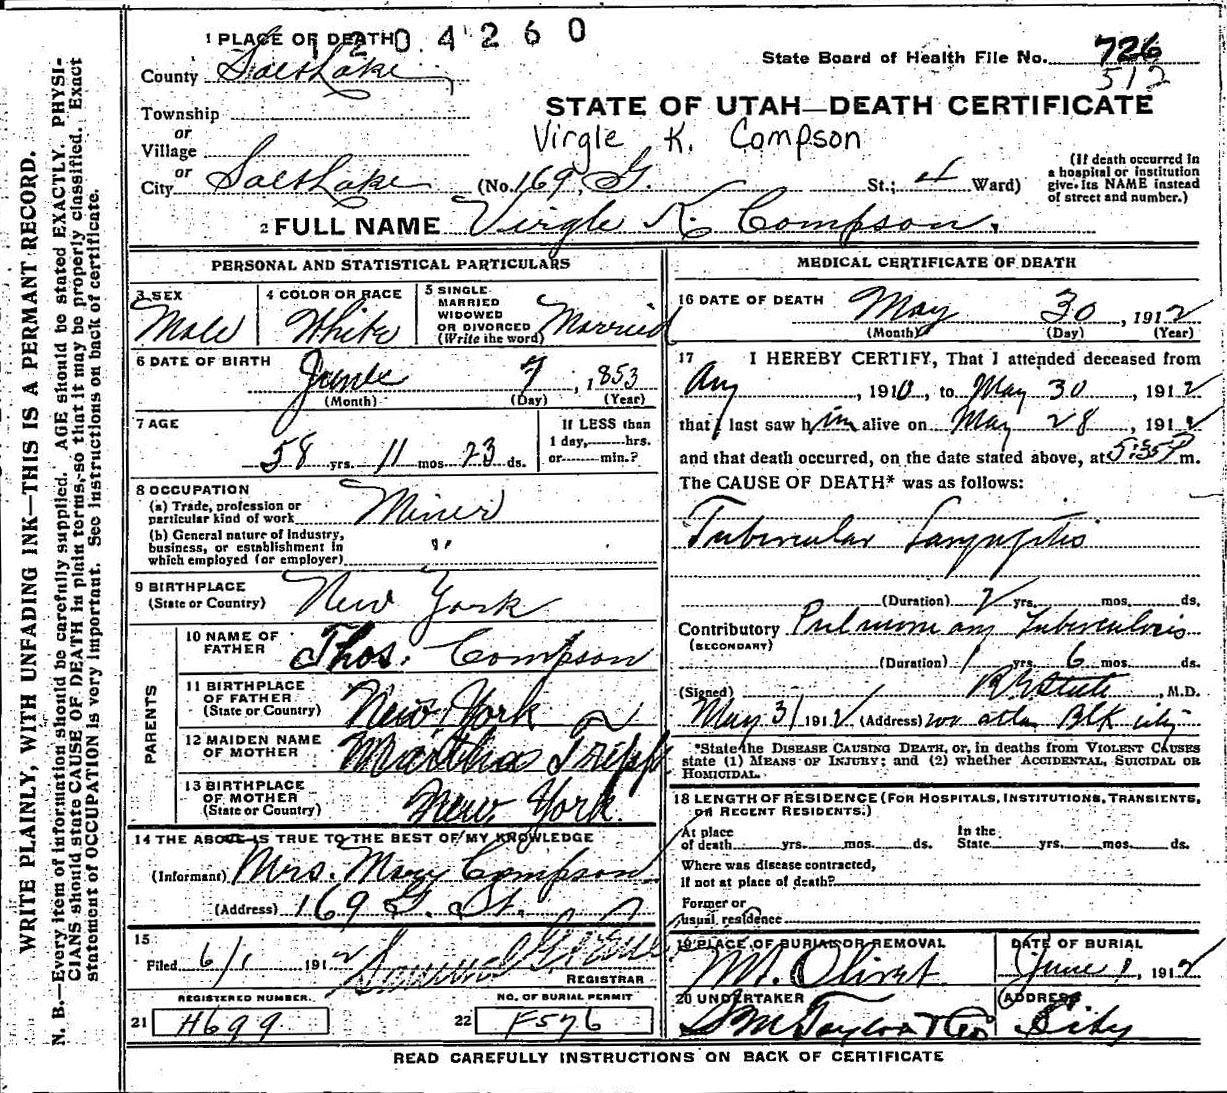 1204260
1 PLACE OF DEATH
State Board of Health File No. 726
512
County Salt Lake
STATE OF UTAH—DEATH CERTIFICATE
Township
or
Virgle K. Compson
Village
or
City Salt Lake (No. 169, G. St.; 4 Ward)
(If death occurred in a hospital or institution give its NAME instead of street and number.)
2 FULL NAME Virgle K Compson.
PERSONAL AND STATISTICAL PARTICULARS
3 SEX
Male
4 COLOR OR RACE
White
5 SINGLE MARRIED WIDOWED OR DIVORCED (Write the word) Married
6 DATE OF BIRTH
June 7, 1853
(Month) (Day) (Year)
7 AGE
58 yrs. 11 mos. 23 ds.
If LESS than
1 day, hrs.
or min.?
8 OCCUPATION
(a) Trade, profession or
particular kind of work Miner
(b) General nature of industry,
business, or establishment in
which employed (or employer) "
9 BIRTHPLACE
(State or Country) New York
PARENTS
10 NAME OF FATHER Thos. Compson
11 BIRTHPLACE OF FATHER (State or Country) New York
12 MAIDEN NAME OF MOTHER Martha Tripp
13 BIRTHPLACE OF MOTHER (State or Country) New York.
14 THE ABOVE IS TRUE TO THE BEST OF MY KNOWLEDGE
(Informant) Mrs. Mary Compson
(Address) 169 G. St.
15
Filed 6/1 1912
REGISTRAR
REGISTERED NUMBER. NO. OF BURIAL PERMIT
21 H699 22 F576
MEDICAL CERTIFICATE OF DEATH
16 DATE OF DEATH May 30, 1912
(Month) (Day) (Year)
17 I HEREBY CERTIFY, That I attended deceased from
1910, to May 30, 1912
that I last saw him alive on May 28, 1912
and that death occurred, on the date stated above, at 5:35 P m.
The CAUSE OF DEATH* was as follows:
Tubercular Laryngitis
(Duration) 2 yrs. mos. ds.
Contributory Pulmonary Tuberculosis
(SECONDARY)
(Duration) 1 yrs. 6 mos. ds.
(Signed) M.D.
May 31 1912 (Address) Atlas Blk city
*State the DISEASE CAUSING DEATH, or, in deaths from VIOLENT CAUSES
state (1) MEANS OF INJURY; and (2) whether ACCIDENTAL, SUICIDAL OR
HOMICIDAL.
18 LENGTH OF RESIDENCE (FOR HOSPITALS, INSTITUTIONS, TRANSIENTS,
OR RECENT RESIDENTS.)
At place
of death yrs. mos. ds.
In the
State yrs. mos. ds.
Where was disease contracted,
if not at place of death?
Former or
usual residence
19 PLACE OF BURIAL OR REMOVAL
Mt. Olivet
DATE OF BURIAL
June 1, 1912
20 UNDERTAKER
S M Taylor & Co
ADDRESS
City
READ CAREFULLY INSTRUCTIONS ON BACK OF CERTIFICATE
WRITE PLAINLY, WITH UNFADING INK—THIS IS A PERMANT RECORD.
N. B.—Every item of information should be carefully supplied. AGE should be stated EXACTLY. PHYSI-
CIANS should state CAUSE OF DEATH in plain terms, so that it may be properly classified. Exact
statement of OCCUPATION is very important. See instructions on back of certificate.